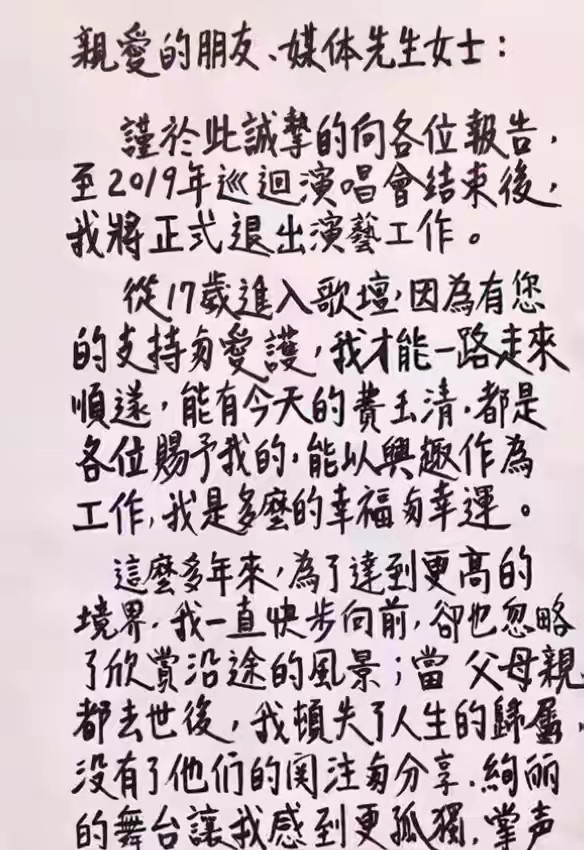 親愛的朋友、媒体先生女士：
謹於此誠摯的向各位報告，
至2019年巡迴演唱會结束後，
我將正式退出演藝工作。
從17歲進入歌壇，因為有您
的支持与愛護，我才能一路走來
順遂，能有今天的費玉清，都是
各位賜予我的，能以興趣作為
工作，我是多麼的幸福与幸運。
這麼多年來，為了達到更高的
境界，我一直快步向前，卻也忽略
了欣赏沿途的風景；當父母親
都去世後，我頓失了人生的歸屬，
没有了他们的関注与分享，絢丽
的舞台讓我感到更孤獨，掌声